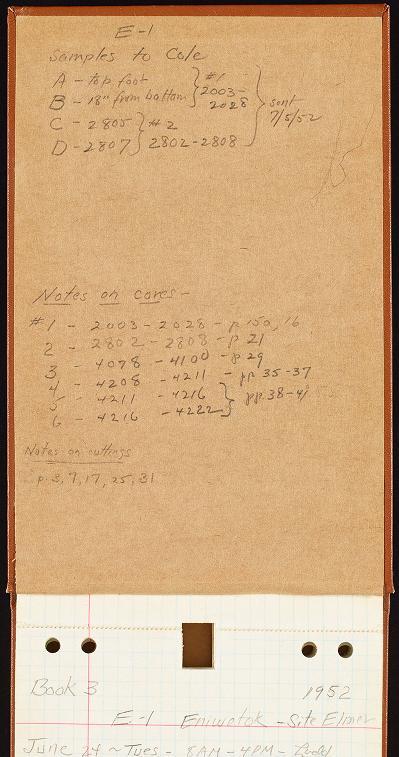 E-1
Samples to Cole
A - top foot } #1
B - 18" from bottom } 2003-2028 } sent 7/5/52
C - 2805 } #2
D - 2807 } 2802-2808
15
Notes on cores -
#1 - 2003 - 2028 - p 15a, 16
2 - 2802 - 2808 - p 21
3 - 4078 - 4100 - p 29
4 - 4208 - 4211 - pp 35-37
5 - 4211 - 4216 } pp 38-41
6 - 4216 - 4222 }
Notes on cuttings
p. 3, 7, 17, 25, 31
Book 3 1952
E-1 Eniwetok - Site Elmer
June 24 ~ Tues - 8AM - 4PM - Ladd